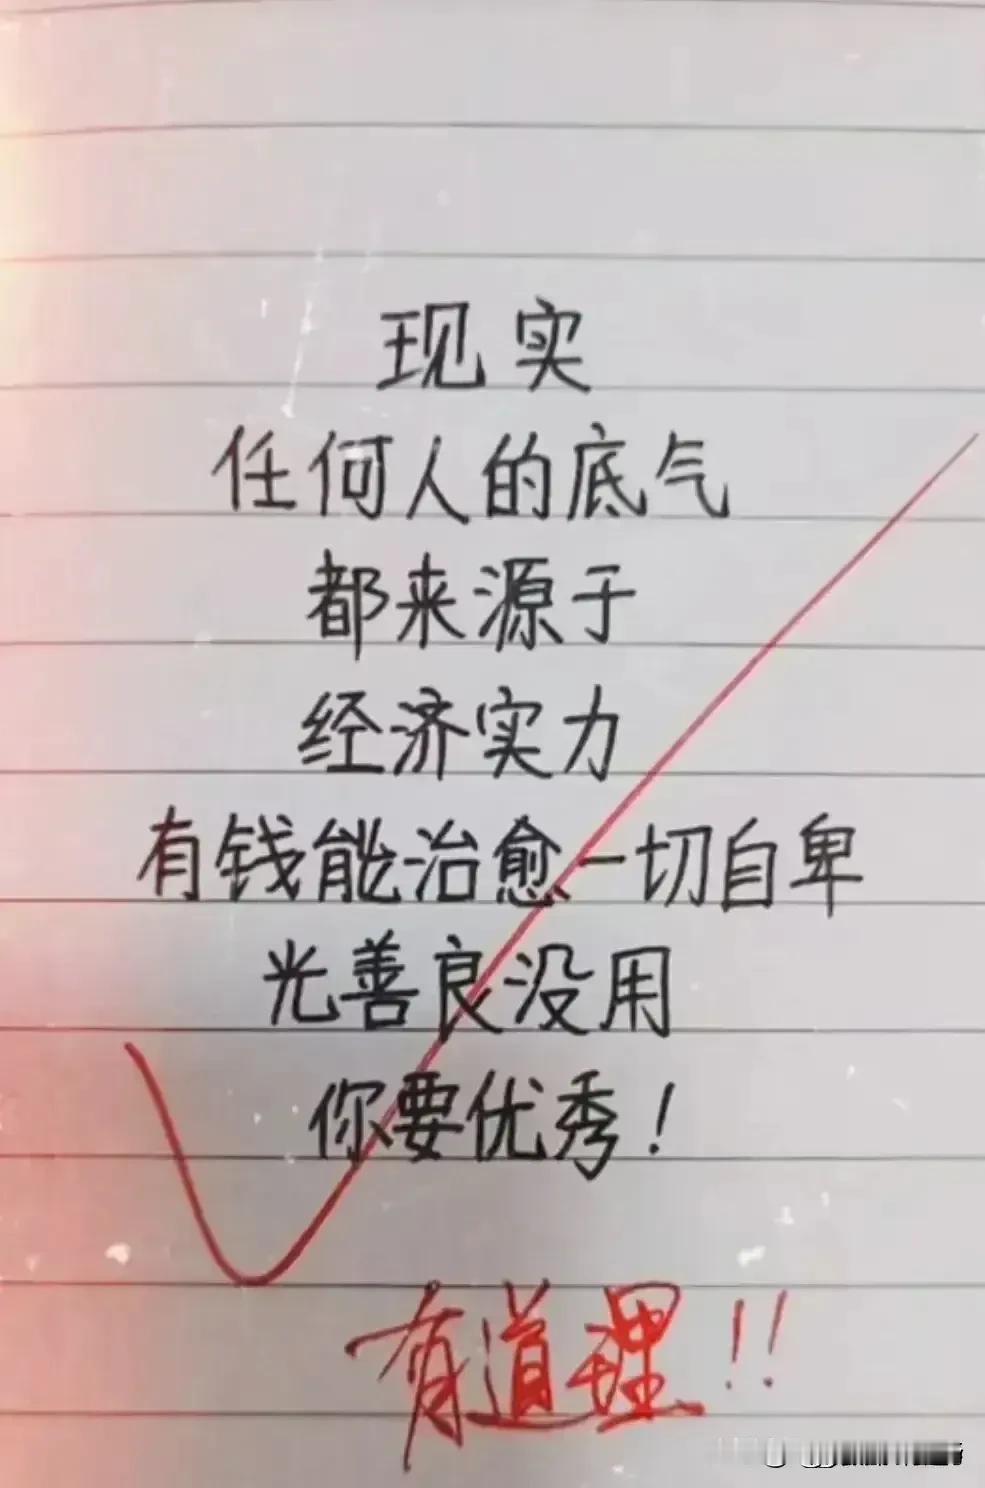 现实
任何人的底气
都来源于
经济实力
有钱能治愈一切自卑
光善良没用
你要优秀!
有道理!!